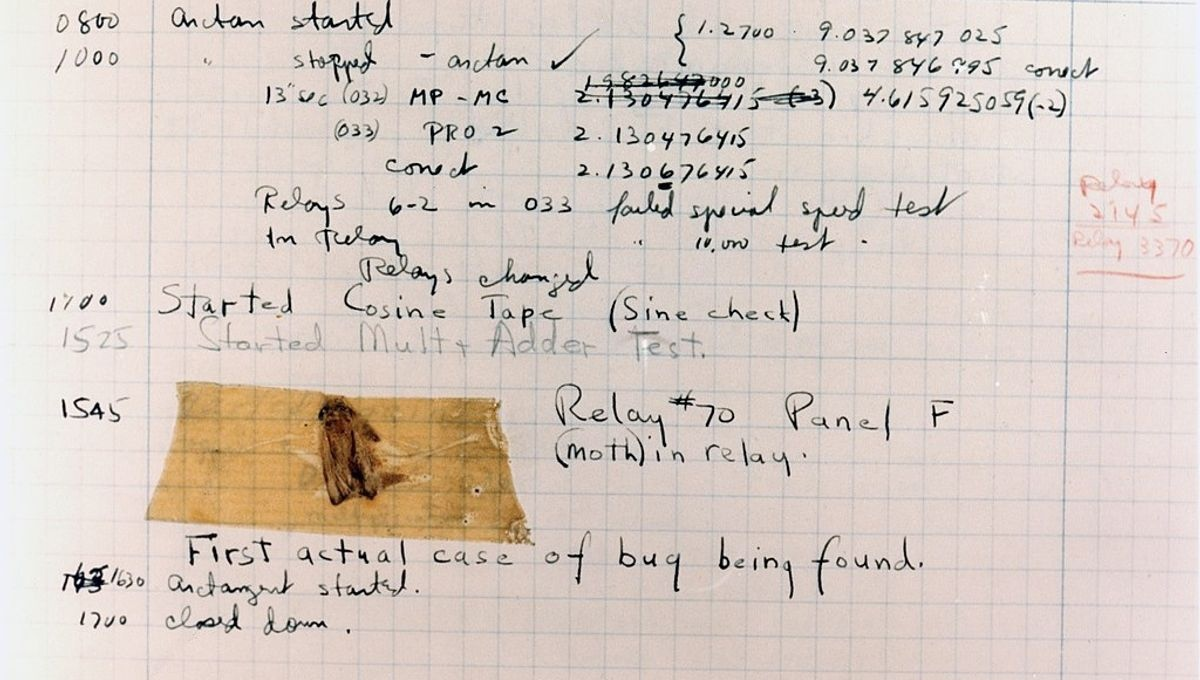 0800 Antan started { 1.2700 9.037 847 025
1000 " stopped - antan ✓ 9.037 846 995 conect
13" sec (032) MP - MC 1.982647000
2.130476415 (-3) 4.615925059(-2)
(033) PRO 2 2.130476415
conect 2.130676415
Relays 6-2 in 033 failed special speed test
In Relay " 10,000 test .
Relay
2145
Relay 3370
Relays changed
1700 Started Cosine Tape (Sine check)
1525 Started Mult + Adder Test.
1545 Relay #70 Panel F
(moth) in relay.
First actual case of bug being found.
1630 Antangent started.
1700 closed down.